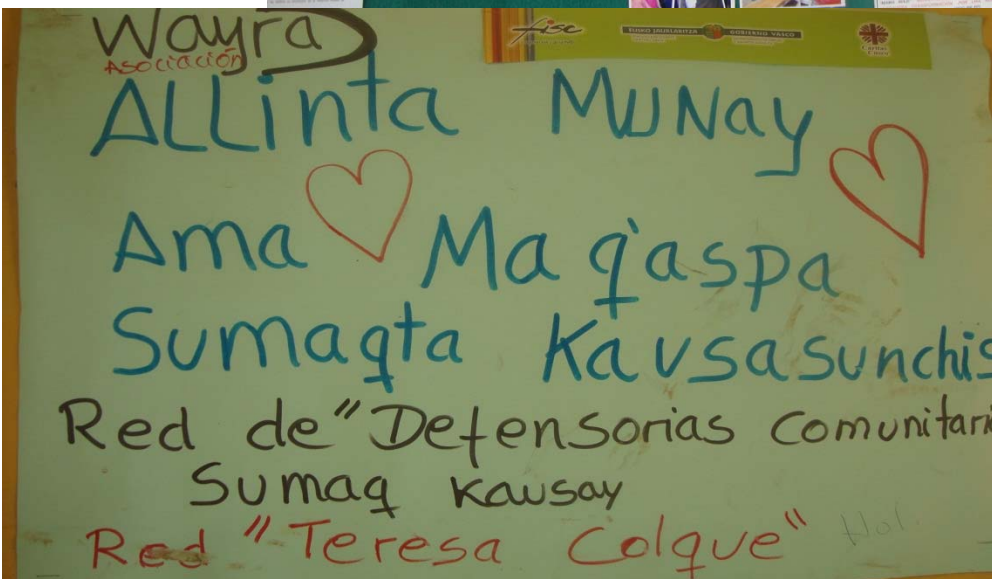 Wayra
Asociación
fisc
EUSKO JAURLARITZA GOBIERNO VASCO
Caritas
ALLinta MUNay
Ama Ma q'aspa
Sumaqta Kausasunchis
Red de "Defensorias comunitari
Sumaq Kausay
Red "Teresa Colque"
Hol